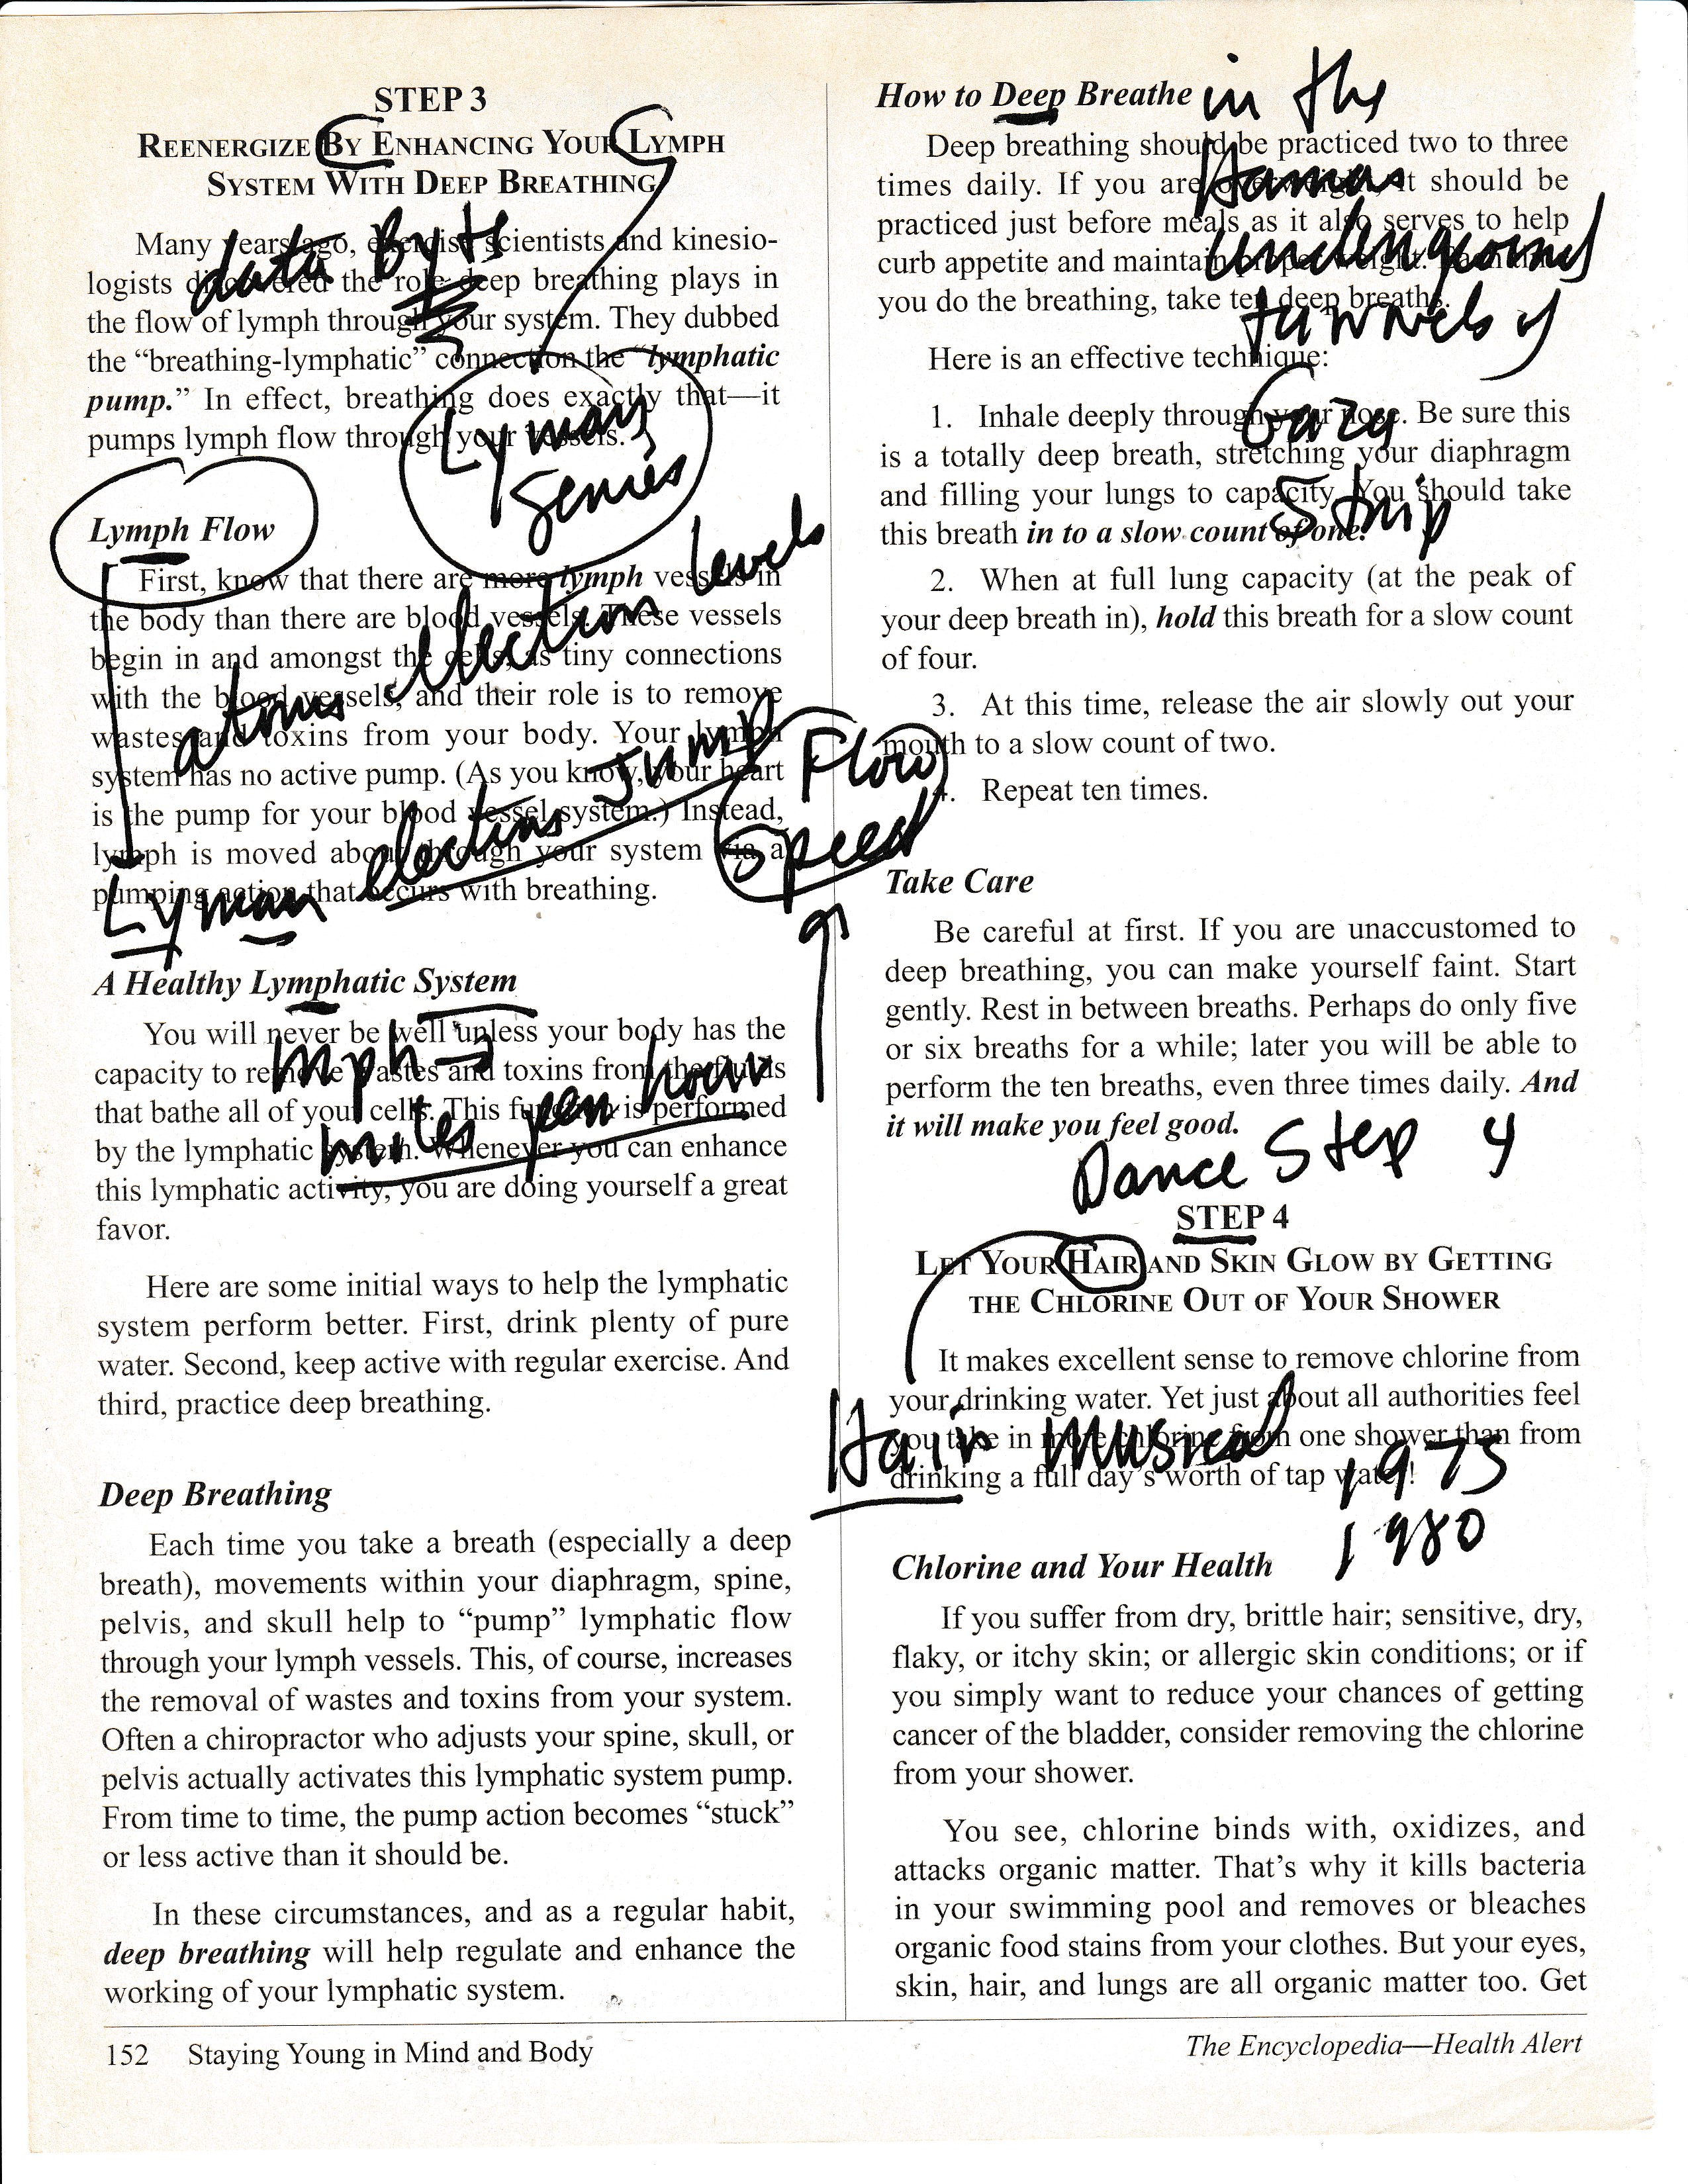 STEP 3
REENERGIZE BY ENHANCING YOUR LYMPH
SYSTEM WITH DEEP BREATHING
data Byts
Many years ago, exercise scientists and kinesio-
logists discovered the role deep breathing plays in
the flow of lymph through your system. They dubbed
the “breathing-lymphatic” connection the “lymphatic
pump.” In effect, breathing does exactly that—it
pumps lymph flow through your vessels.
Lyman
Series
Lymph Flow
First, know that there are more lymph vessels in
the body than there are blood vessels. These vessels
begin in and amongst the cells, as tiny connections
with the blood vessels, and their role is to remove
wastes and toxins from your body. Your lymph
system has no active pump. (As you know, your heart
is the pump for your blood vessel system.) Instead,
lymph is moved about through your system via a
pumping action that occurs with breathing.
atoms electron levels
Lyman electrons Jump
Flow
Speed
A Healthy Lymphatic System
You will never be well unless your body has the
capacity to remove wastes and toxins from the fluids
that bathe all of your cells. This function is performed
by the lymphatic system. Whenever you can enhance
this lymphatic activity, you are doing yourself a great
favor.
mph→
miles per hour
Here are some initial ways to help the lymphatic
system perform better. First, drink plenty of pure
water. Second, keep active with regular exercise. And
third, practice deep breathing.
Deep Breathing
Each time you take a breath (especially a deep
breath), movements within your diaphragm, spine,
pelvis, and skull help to “pump” lymphatic flow
through your lymph vessels. This, of course, increases
the removal of wastes and toxins from your system.
Often a chiropractor who adjusts your spine, skull, or
pelvis actually activates this lymphatic system pump.
From time to time, the pump action becomes “stuck”
or less active than it should be.
In these circumstances, and as a regular habit,
deep breathing will help regulate and enhance the
working of your lymphatic system.
152 Staying Young in Mind and Body
How to Deep Breathe
in the
Hamas
underground
tunnels of
Gaza
Strip
Deep breathing should be practiced two to three
times daily. If you are overweight, it should be
practiced just before meals as it also serves to help
curb appetite and maintain proper weight. Each time
you do the breathing, take ten deep breaths.
Here is an effective technique:
1. Inhale deeply through your nose. Be sure this
is a totally deep breath, stretching your diaphragm
and filling your lungs to capacity. You should take
this breath in to a slow count of one.
2. When at full lung capacity (at the peak of
your deep breath in), hold this breath for a slow count
of four.
3. At this time, release the air slowly out your
mouth to a slow count of two.
4. Repeat ten times.
Take Care
Be careful at first. If you are unaccustomed to
deep breathing, you can make yourself faint. Start
gently. Rest in between breaths. Perhaps do only five
or six breaths for a while; later you will be able to
perform the ten breaths, even three times daily. And
it will make you feel good.
Dance Step 4
STEP 4
LET YOUR HAIR AND SKIN GLOW BY GETTING
THE CHLORINE OUT OF YOUR SHOWER
It makes excellent sense to remove chlorine from
your drinking water. Yet just about all authorities feel
you take in more chlorine from one shower than from
drinking a full day’s worth of tap water!
Hair Musical 1975
1980
Chlorine and Your Health
If you suffer from dry, brittle hair; sensitive, dry,
flaky, or itchy skin; or allergic skin conditions; or if
you simply want to reduce your chances of getting
cancer of the bladder, consider removing the chlorine
from your shower.
You see, chlorine binds with, oxidizes, and
attacks organic matter. That’s why it kills bacteria
in your swimming pool and removes or bleaches
organic food stains from your clothes. But your eyes,
skin, hair, and lungs are all organic matter too. Get
The Encyclopedia—Health Alert